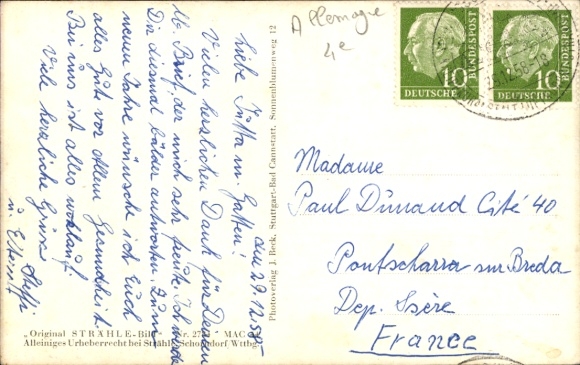 Allemagne
4e
10
DEUTSCHE
BUNDESPOST
10
DEUTSCHE
BUNDESPOST
am 29.12.58
Liebe Jutta m. Gatten!
Vielen herzlichen Dank für Deinen
lb. Brief, der mich sehr freute. Ich werde
Dir diesmal bälder antworten. Zum
neuen Jahre wünsche ich Euch
alles Gute vor allem Gesundheit
Bei uns ist alles wohlauf!
Viele herzliche Grüsse
Steffi
u. Eltern
Photoverlag J. Beck, Stuttgart-Bad Cannstatt, Sonnenblumenweg 12
Madame
Paul Dunand Cité 40
Pontcharra sur Breda
Dep. Isere
France
„Original STRÄHLE-Bild" Nr.
Alleiniges Urheberrecht bei Strähle Schorndorf Wttbg.